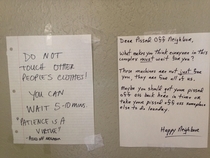 DO NOT
TOUCH OTHER
PEOPLE'S CLOTHES!
YOU CAN
WAIT 5-10 mins.
"PATIENCE IS A
VIRTUE"
Dear Pissed Off Neighbor,
What makes you think everyone in this
complex must wait for you?
These machines are not just for
you, they are for all of us.
Maybe you should get your pissed
off ass back here in time or
take your pissed off ass someplace
else to do laundry.
Happy Neighbor